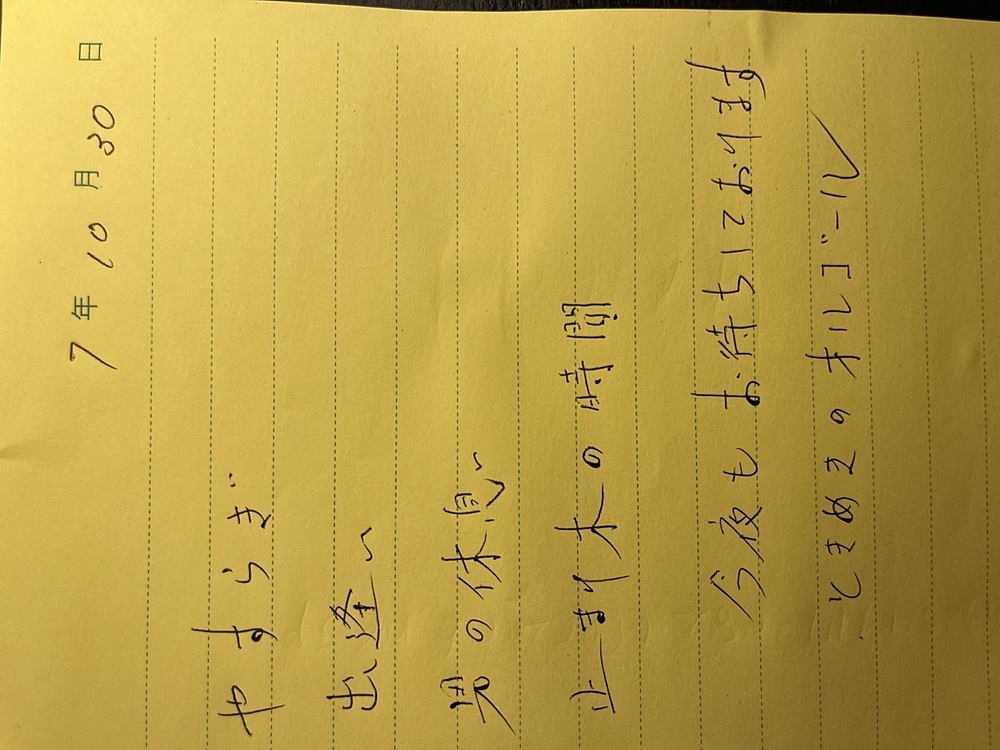 7年10月30日
やすらぎ
出逢い
男の休息
止まり木の時間
今夜もお待ちしております
ときめきのオルゴール